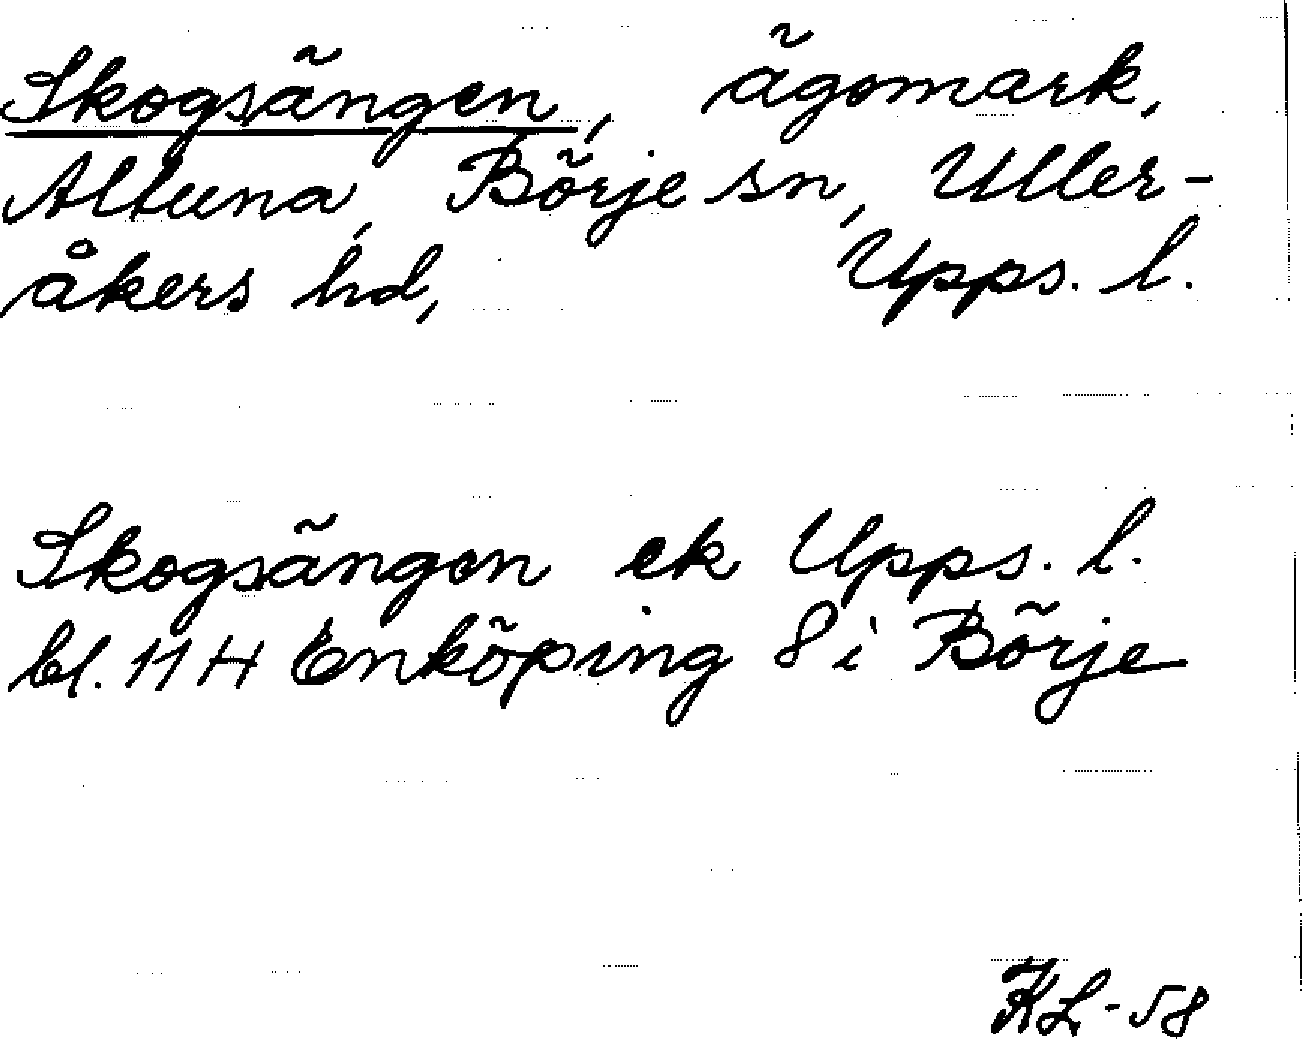 Skogsängen, ägomark,
Altuna, Börje sn, Uller-
åkers hd, Upps. l.
Skogsängen ek Upps. l.
bl. 11 H Enköping 8 i Börje
KL-58